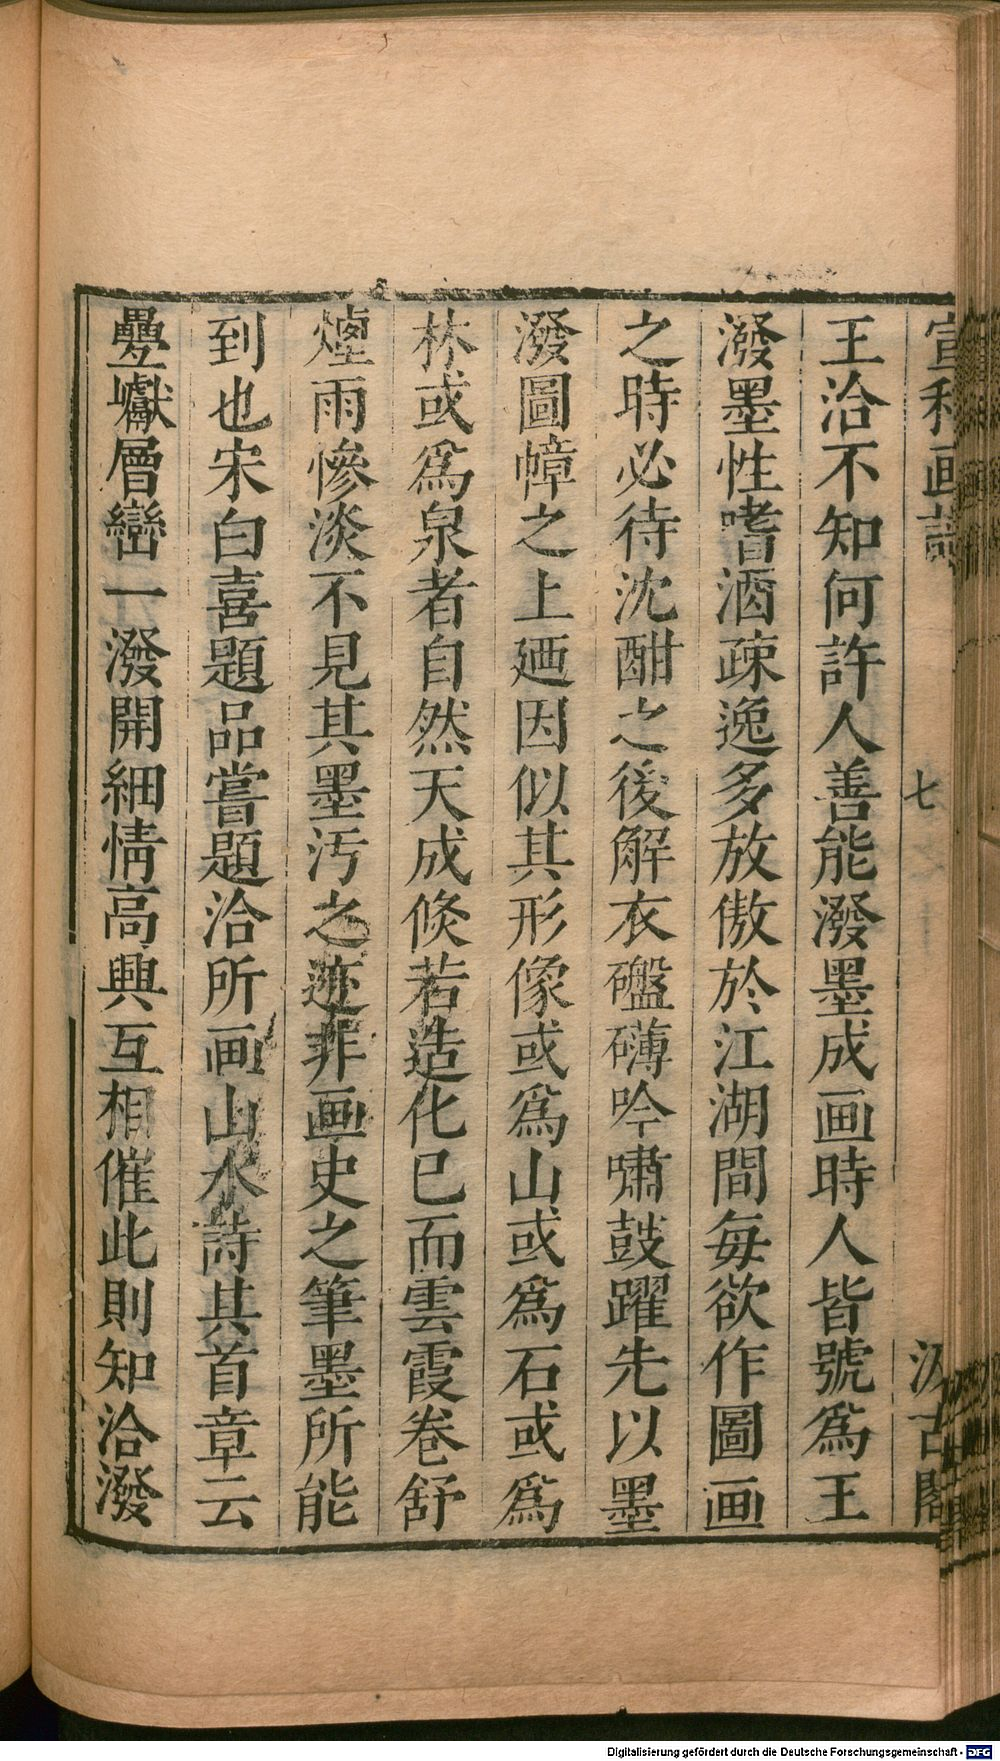 宣和画譜 七 汲古閣
王洽不知何許人善能潑墨成画時人皆號爲王
潑墨性嗜酒疎逸多放傲於江湖間毎欲作圖画
之時必待沈酣之後解衣礠礴吟嘯鼓躍先以墨
潑圖幛之上廼因似其形像或爲山或爲石或爲
林或爲泉者自然天成倐若造化已而雲霞卷舒
煙雨慘淡不見其墨汚之迹非画史之筆墨所能
到也宋白喜題品嘗題洽所画山水詩其首章云
疊巘層巒一潑開細情高興互相催此則知洽潑
Digitalisierung gefördert durch die Deutsche Forschungsgemeinschaft - DFG